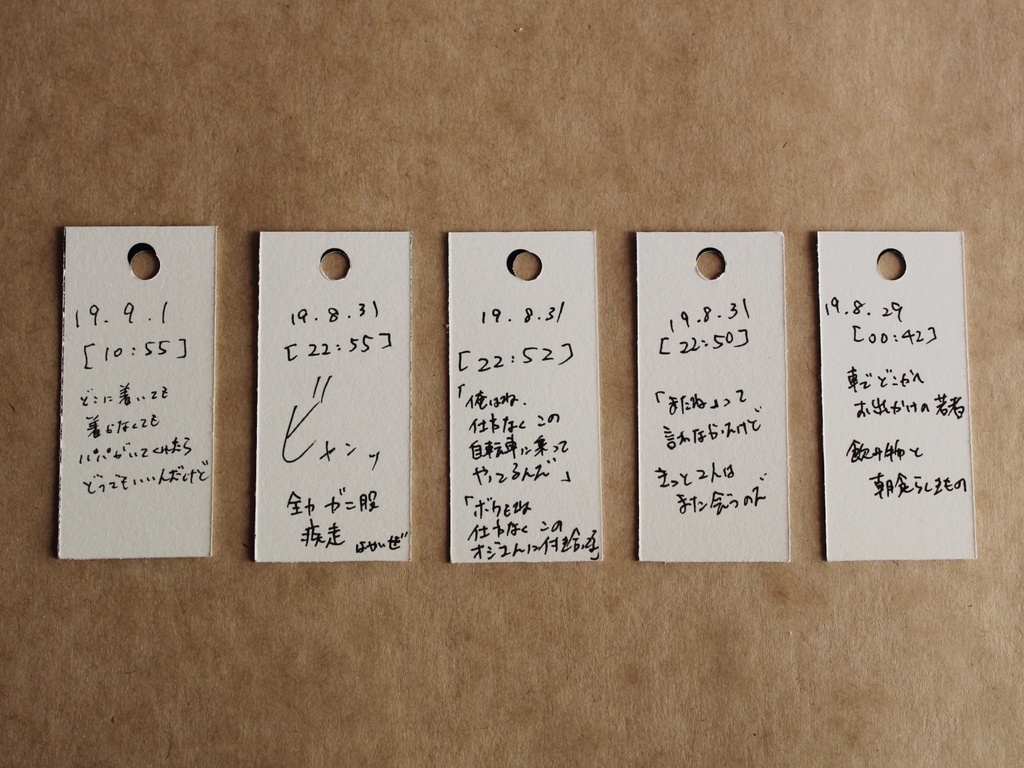 19.9.1
[10:55]
どこに着いても
着かなくても
パパがいてくれたら
どうでもいいんだけど
19.8.31
[22:55]
全力ガニ股
疾走
はやいぜ
19.8.31
[22:52]
「俺はね、
仕方なくこの
自転車に乗って
やってるんだ」
「ボクもね
仕方なくこの
オジさんに付き
19.8.31
[22:50]
「またね」って
言わなかったけど
きっと2人は
また会うので
19.8.29
[00:42]
車でどこかへ
お出かけの若者
飲み物と
朝食らしきもの